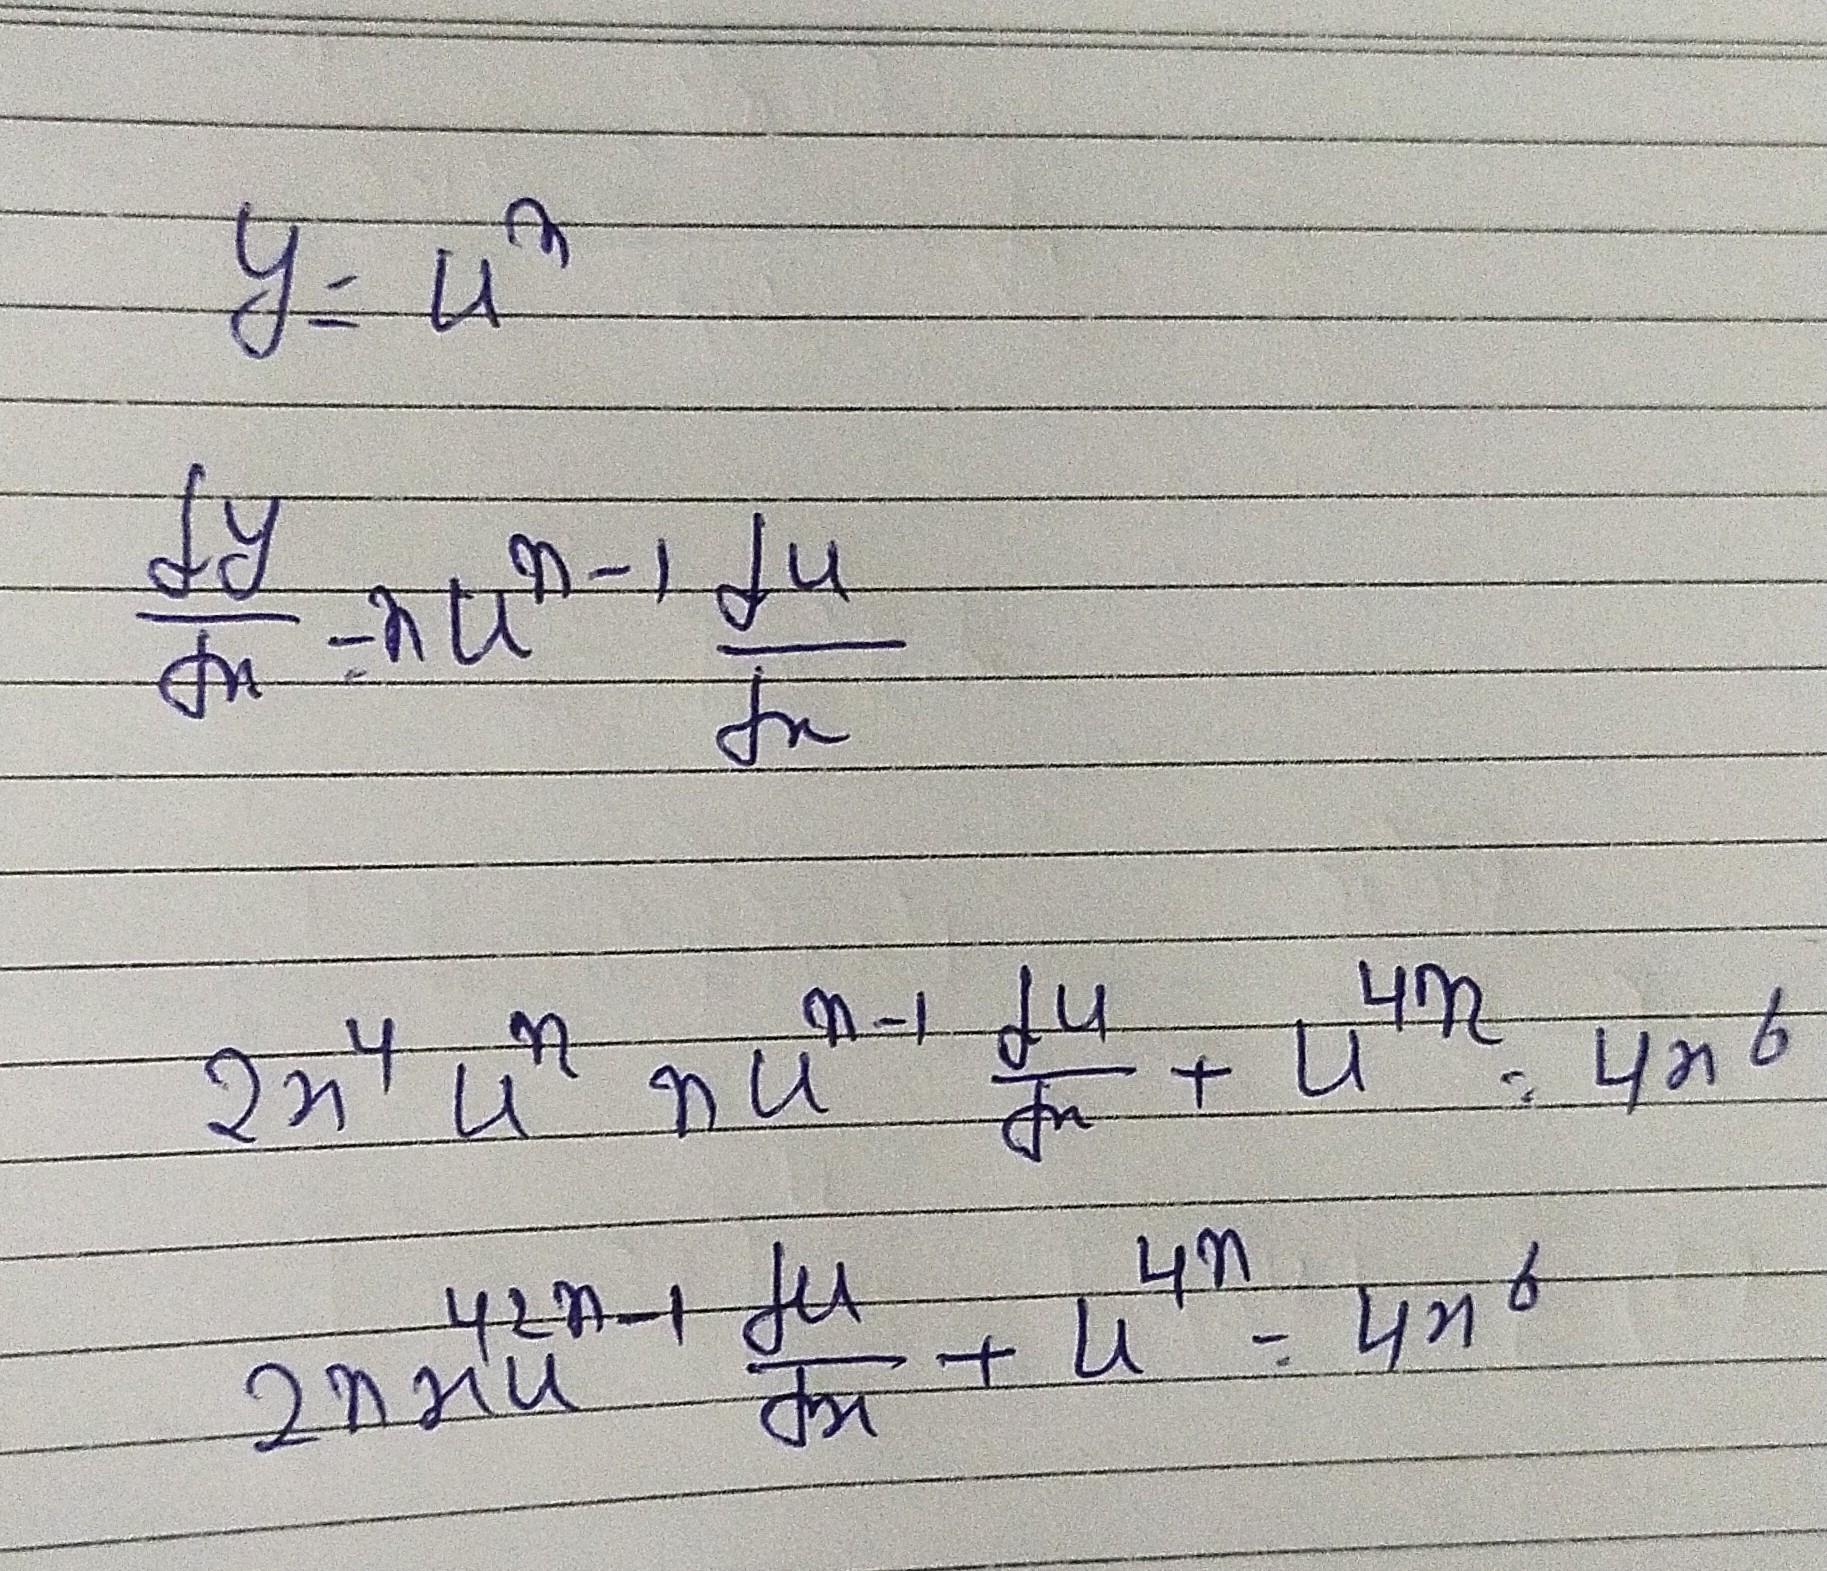 y = u^n
dy/dx = n u^(n-1) du/dx
2x^4 u^n n u^(n-1) du/dx + u^(4n) = 4x^6
2n x^4 u^(2n-1) du/dx + u^(4n) = 4x^6